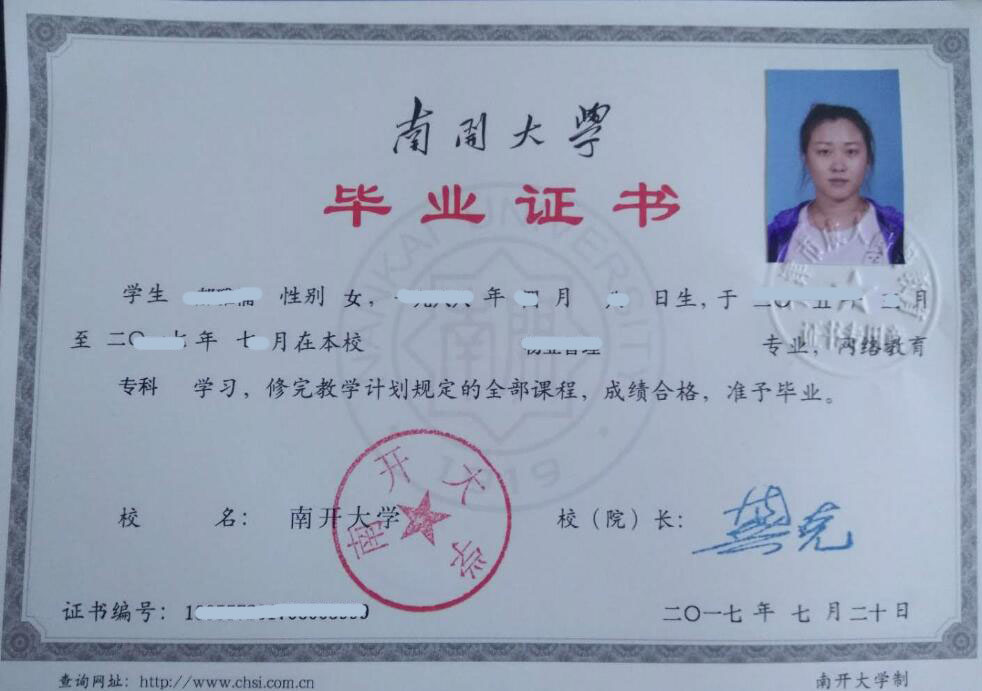 南開大學
毕业证书
学生 性别 女， 年 月 日生，于 月
至二〇 年 七 月在本校 专业，网络教育
专科 学习，修完教学计划规定的全部课程，成绩合格，准予毕业。
校 名： 南开大学 校（院）长：
南开大学
证书编号：1
二〇一七 年 七 月 二十 日
查询网址：http://www.chsi.com.cn 南开大学制
NANKAI UNIVERSITY
1919